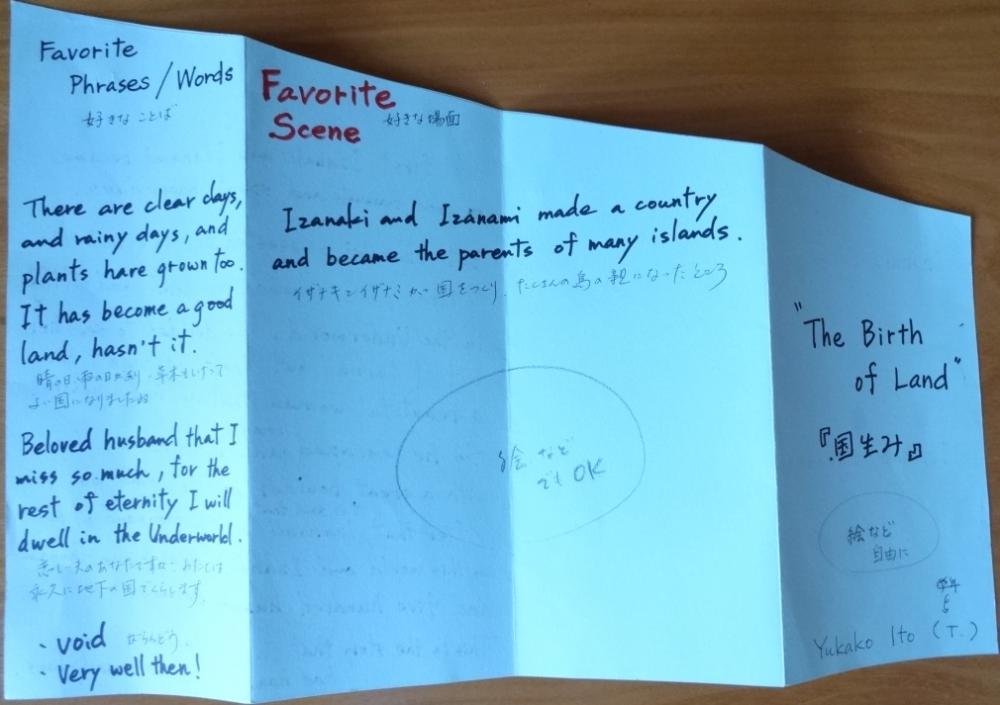 Favorite
Phrases/Words
好きなことば
There are clear days,
and rainy days, and
plants have grown too.
It has become a good
land, hasn't it.
晴の日、雨の日があり、草木もしげって
よい国になりましたね
Beloved husband that I
miss so much, for the
rest of eternity I will
dwell in the Underworld.
恋しい夫のあなたですが、わたしは
永久に地下の国でくらします。
・void がらんどう
・Very well then!
Favorite
Scene
好きな場面
Izanaki and Izanami made a country
and became the parents of many islands.
イザナキとイザナミが国をつくり、たくさんの島の親になったところ
絵など
でもOK
"The Birth
of Land"
『国生み』
絵など
自由に
Yukako Ito (T.)